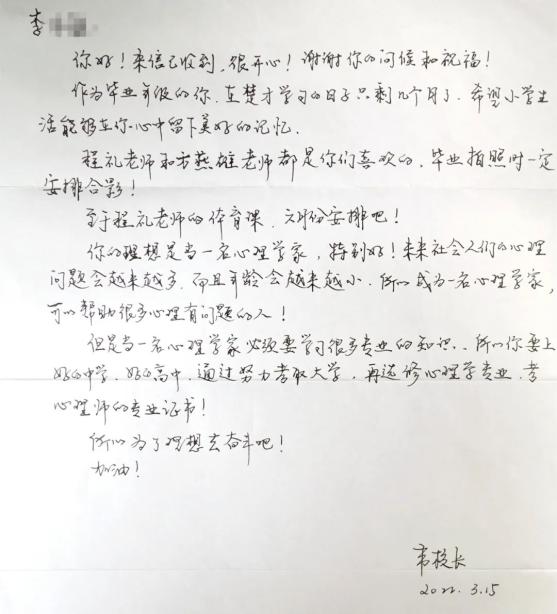 李
你好！来信已收到，很开心！谢谢你的问候和祝福！
作为毕业年级的你，在楚才学习的日子只剩几个月了，希望小学生
活能够在你心中留下美好的记忆．
程礼老师和方燕雄老师都是你们喜欢的，毕业拍照时一定
安排合影！
至于程礼老师的体育课，六月份安排吧！
你的理想是当一名心理学家，特别好！未来社会人们的心理
问题会越来越多，而且年龄会越来越小．所以成为一名心理学家，
可以帮助很多心理有问题的人！
但是当一名心理学家必须要学习很多专业的知识．所以你要上
好的中学、好的高中，通过努力考取大学，再选修心理学专业，考
心理师的专业证书！
所以为了理想去奋斗吧！
加油！
韦校长
2022．3.15